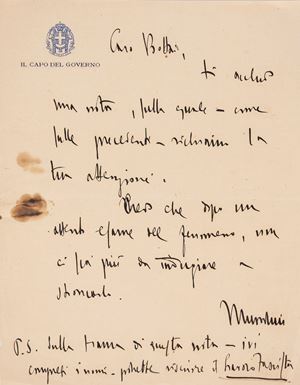 IL CAPO DEL GOVERNO
Caro Bottai,
ti accludo
una nota, sulla quale – come
sulle precedenti – richiamo la
tua attenzione.
Credo che dopo un
attento esame del fenomeno, non
ci sia più da indugiare a
stroncarlo.
Mussolini
P.S. Sulla trama di questa nota – ivi
compresi i nomi – potrebbe uscire il Lavoro Fascista